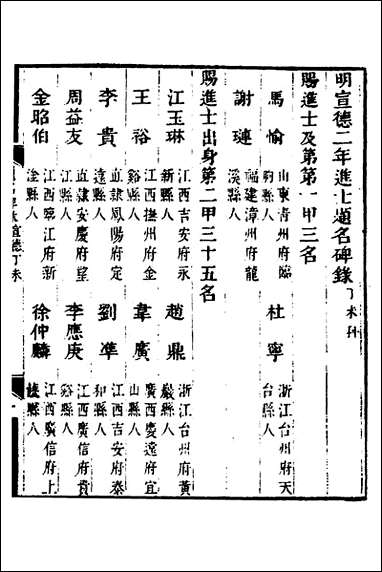 明宣德二年進士題名碑錄 丁未科
賜進士及第第一甲三名
馬愉 山東青州府臨朐縣人
杜寧 浙江台州府天台縣人
謝璉 福建漳州府龍溪縣人
賜進士出身第二甲三十五名
江玉琳 江西吉安府永新縣人
趙鼎 浙江台州府黃巖縣人
王裕 江西撫州府金谿縣人
韋廣 廣西慶遠府宜山縣人
李貴 直隸鳳陽府定遠縣人
劉準 江西吉安府泰和縣人
周益友 直隸安慶府望江縣人
李應庚 江西廣信府貴谿縣人
金昭伯 江西臨江府新淦縣人
徐仲麟 江西廣信府上饒縣人
宣德丁未